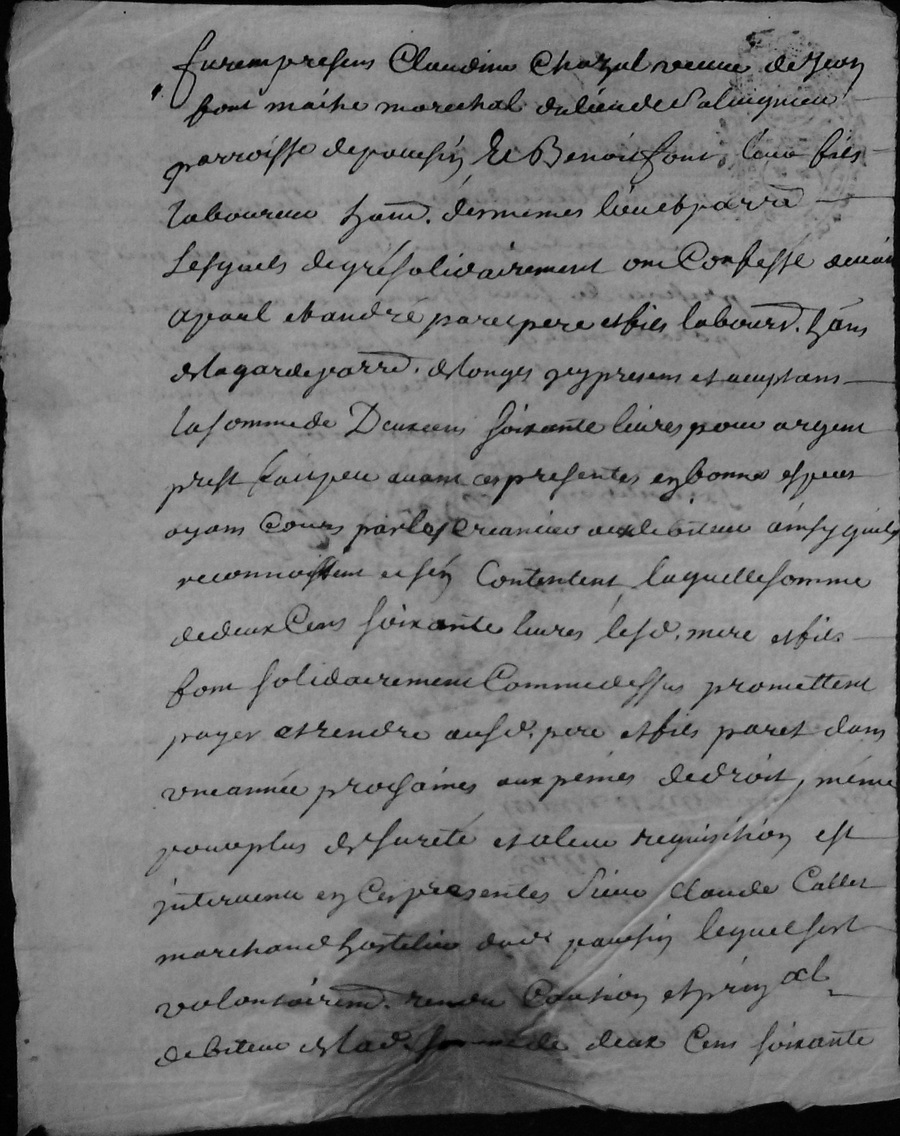 furem presens Claudine Chazal veuve de Jean
font maitre marechal du lieu de
parroisse de pavesin, Et Benoit font, leur fils
laboureur hant. desmemes lieu et parre
Lesquels de gré solidairement ont Confessé devoir
a paul et andré paret pere et fils labours. hans
de la garde parre. de longes icy presens et acceptans
la somme de Deux cens soixante livres pour argent
prest fait peu avant ces presentes en bonnes especes
ayant Cours par les Creanciers aux debiteurs ainsy quils
reconnoissent et s'en Contentent, laquelle somme
de deux Cens soixante livres lesd. mere et fils
font solidairement Comme dessus promettent
payer et rendre ausd. pere et fils paret dans
une année prochaines aux peines de droit, même
pour plus de sureté et a leur requisition est
intervenu en Ces presentes Sieur Claude Callet
marchand hostelier dud. pavesin lequel s'est
volontairemt. rendu Caution et prinal
debiteur de lad. somme de deux Cens soixante